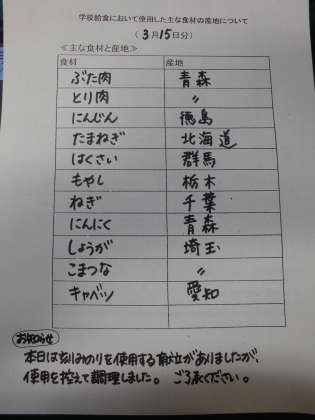 学校給食において使用した主な食材の産地について
( 3月15日分)
≪主な食材と産地≫
食材 産地
ぶた肉 青森
とり肉 〃
にんじん 徳島
たまねぎ 北海道
はくさい 群馬
もやし 栃木
ねぎ 千葉
にんにく 青森
しょうが 埼玉
こまつな 〃
キャベツ 愛知
お知らせ
本日は刻みのりを使用する献立がありましたが、
使用を控えて調理しました。ご了承ください。